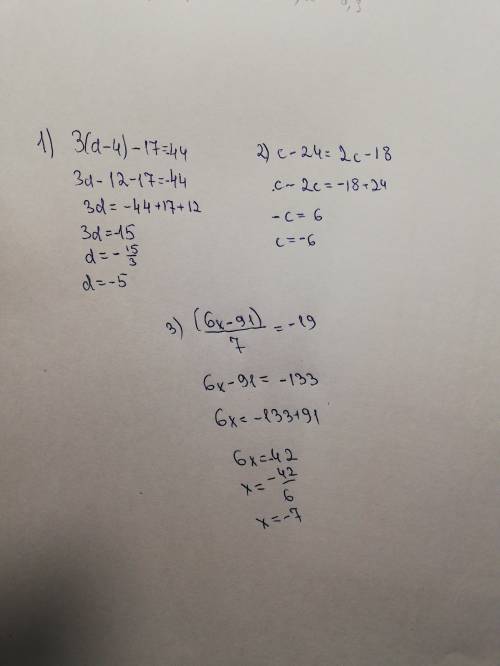 1) 3(d-4)-17=-44
3d-12-17=-44
3d=-44+17+12
3d=-15
d=-15/3
d=-5
2) c-24=2c-18
c-2c=-18+24
-c=6
c=-6
3) (6x-91)/7=-19
6x-91=-133
6x=-133+91
6x=-42
x=-42/6
x=-7